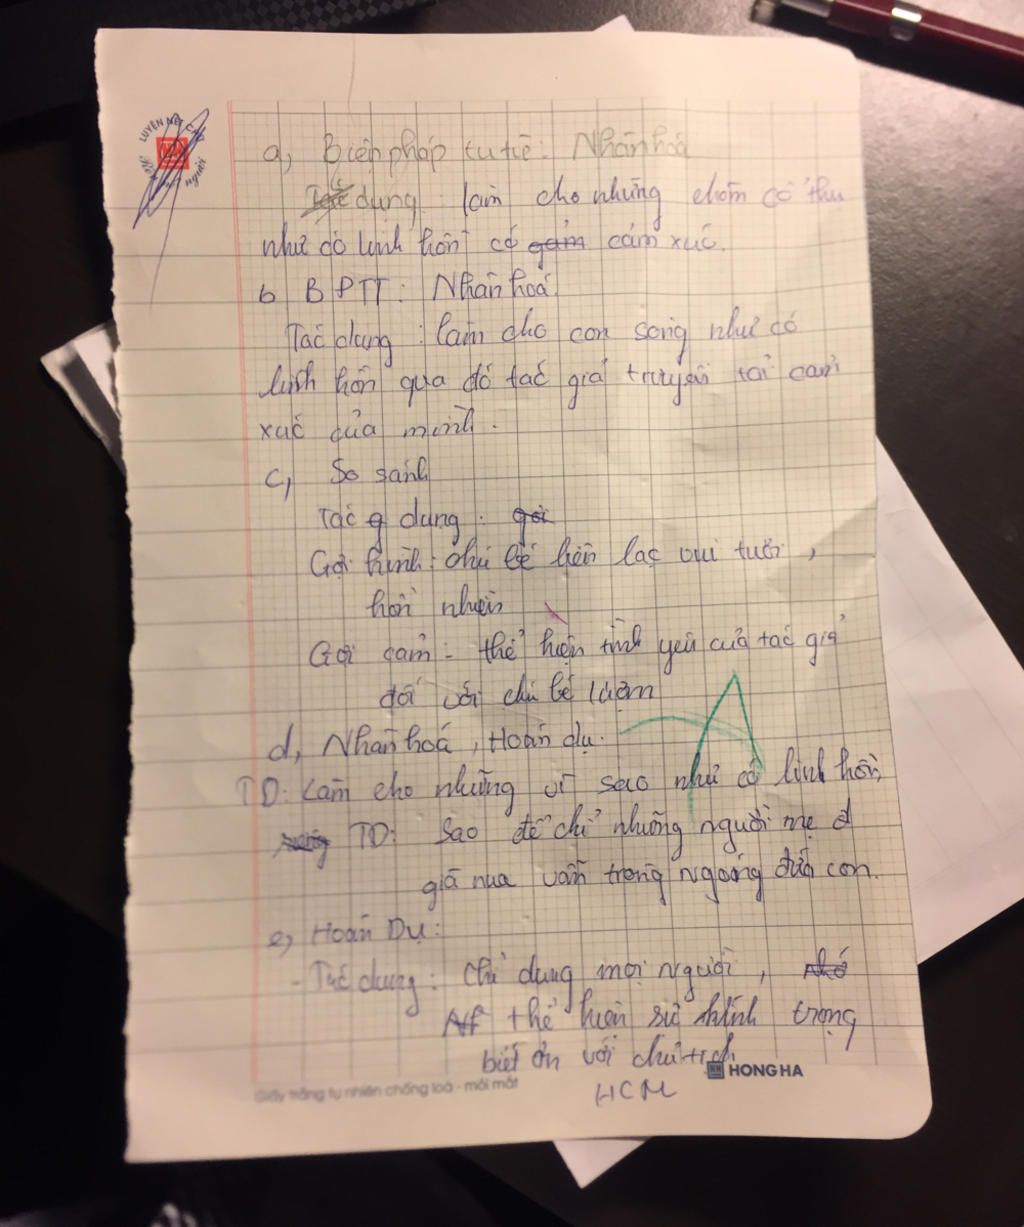 LUYỆN NÉT CHỮ
người
a, Biện pháp tu từ: Nhân hoá
dụng: làm cho những chòm cổ thụ
như có linh hồn có cảm xúc.
b BPTT: Nhân hoá.
Tác dụng: làm cho con sông như có
linh hồn qua đó tác giả truyền tải cảm
xúc của mình.
c, So sánh
Tác dụng:
Gợi hình: chú bé liên lạc vui tươi,
hồn nhiên
Gợi cảm: thể hiện tình yêu của tác giả
đối với chú bé Lượm
d, Nhân hoá, Hoán dụ.
TD: Làm cho những vì sao như có linh hồn,
TD: Sao để chỉ những người mẹ
già nua vẫn trông ngóng đứa con.
e, Hoán Dụ:
- Tác dụng: chỉ dùng mọi người,
thể hiện sự kính trọng
biết ơn với chủ tịch
HONG HA
Giấy trắng tự nhiên chống loá - mỏi mắt
HCM